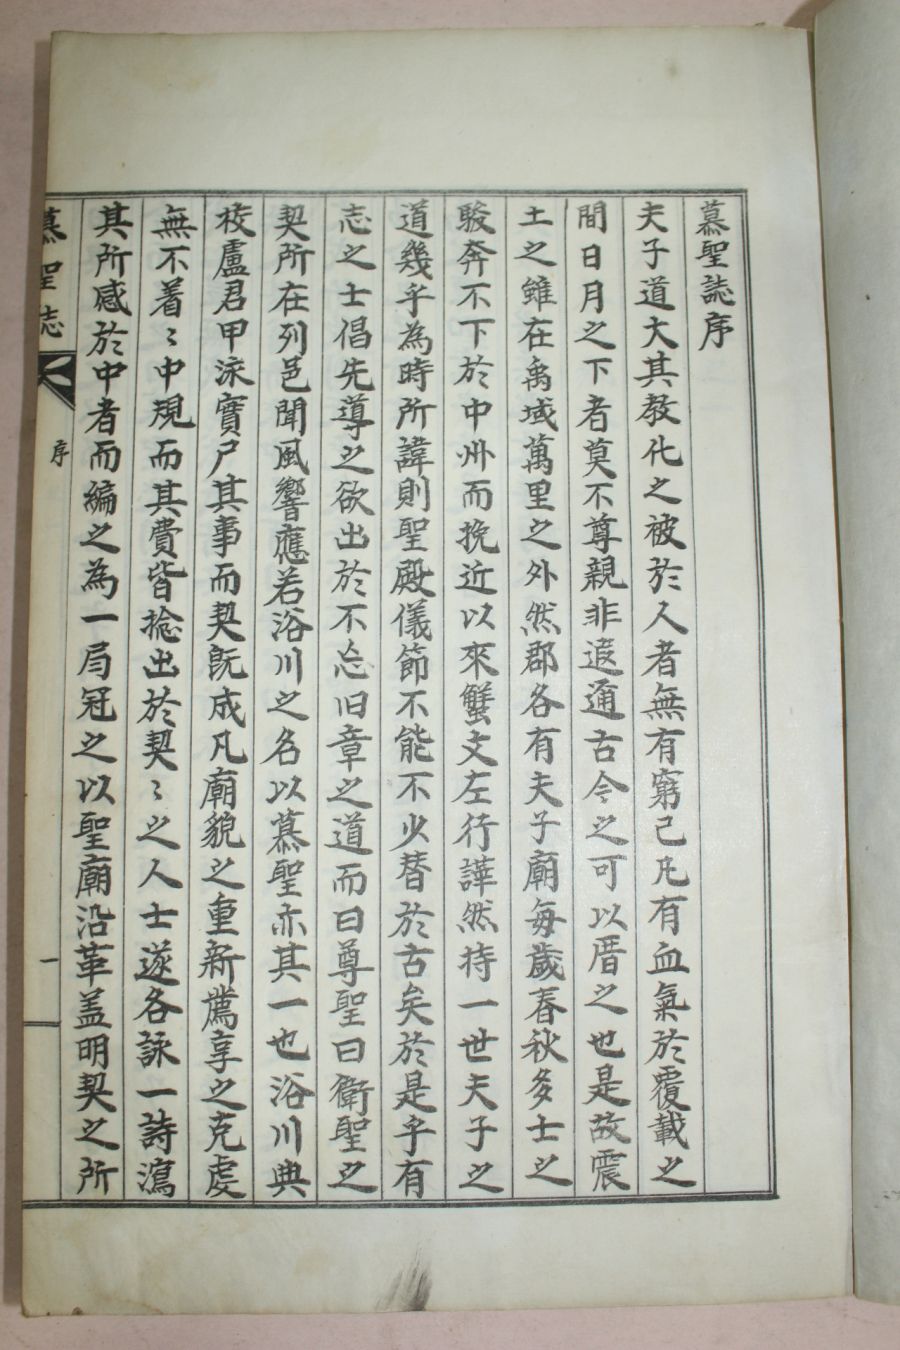 慕聖誌序
夫子道大其教化之被於人者無有窮己凡有血氣於覆載之
間日月之下者莫不尊親非遐邇古今之可以厝之也是故震
土之雖在禹域萬里之外然郡各有夫子廟每歲春秋多士之
駿奔不下於中州而挽近以來蟹文左行譁然持一世夫子之
道幾乎為時所諱則聖殿儀節不能不少替於古矣於是乎有
志之士倡先導之欲出於不忘旧章之道而曰尊聖曰衛聖之
契所在列邑聞風響應若浴川之名以慕聖亦其一也浴川典
校盧君甲泳實尸其事而契既成凡廟貌之重新薦享之克虔
無不着〻中規而其費皆捴出於契〻之人士遂各詠一詩瀉
其所感於中者而編之為一局冠之以聖廟沿革盖明契之所
慕聖誌
序
一